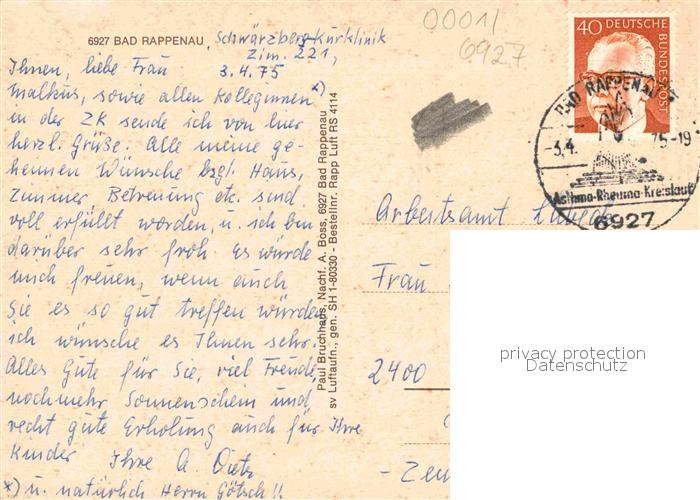 6927 BAD RAPPENAU, Schwärzberg-Kurklinik
Zim. 221,
3.4.75
Ihnen, liebe Frau
Malkus, sowie allen Kolleginnen *)
in der ZK sende ich von hier
herzl. Grüße. Alle meine ge-
heimen Wünsche bzgl. Haus,
Zimmer, Betreuung etc. sind
voll erfüllt worden, u. ich bin
darüber sehr froh. Es würde
mich freuen, wenn auch
Sie es so gut treffen würden
ich wünsche es Ihnen sehr.
Alles Gute für Sie, viel Freude,
noch mehr Sonnenschein und
recht gute Erholung auch für Ihre
Kinder Ihre A. Dietz
*) u. natürlich Herrn Götsch!!
Paul Bruchhaus, Nachf. A. Boss, 6927 Bad Rappenau
sv Luftaufn., gen. SH 1-80330 - Bestellnr. Rapp Luft RS 4114
0001/
6927
40 DEUTSCHE
BUNDESPOST
BAD RAPPENAU
-3.4. 75-19
Asthma-Rheuma-Kreislauf
6927
Arbeitsamt Lübeck
Frau
2400
- Zen
privacy protection
Datenschutz